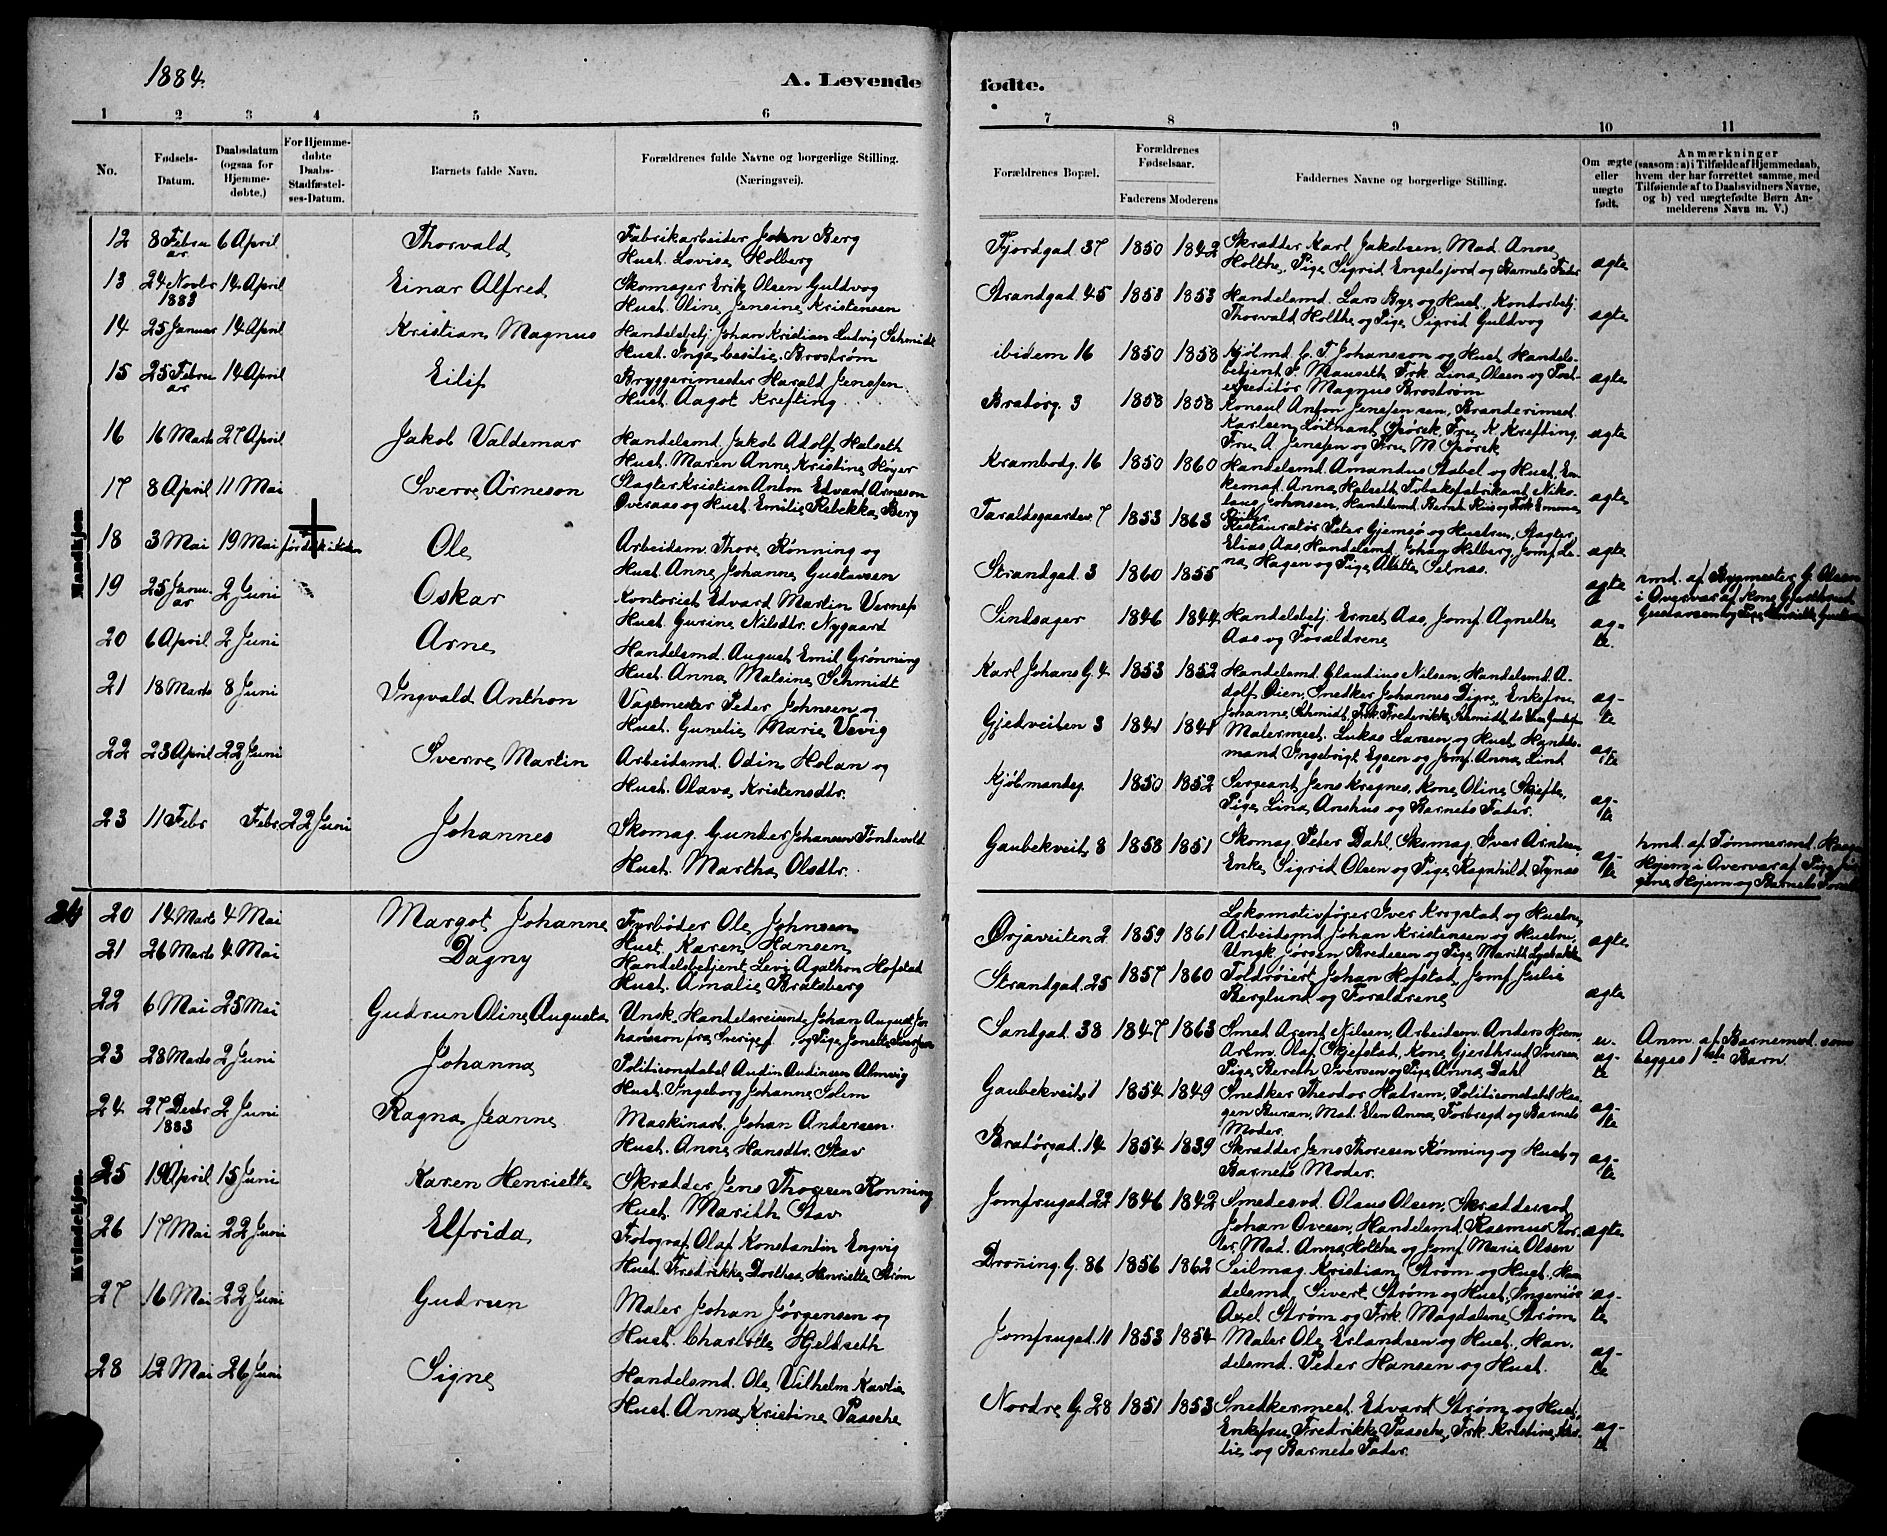 1884.
A. Levende
fødte.
1 2 3 4 5 6
7 8 9 10 11
No.
Fødsels-
Datum.
Daabsdatum
(ogsaa for
Hjemme-
døbte.)
For Hjemme-
døbte
Daabs-
Stadfæstel-
ses-Datum.
Barnets fulde Navn.
Forældrenes fulde Navne og borgerlige Stilling.
(Næringsvei).
Forældrenes Bopæl.
Forældrenes
Fødselsaar.
Faderens Moderens
Faddernes Navne og borgerlige Stilling.
Om ægte
eller
uægte
født.
Anmærkninger
(saasom: a) i Tilfælde af Hjemmedaab,
hvem der har forrettet samme, med
Tilføiende af to Daabsvidners Navne,
og b) ved uægtefødte Børn An-
melderens Navn m. V.)
Mandkjøn.
12 8 Febru 6 April Thorvald Fabrikarbeider John Berg
ar Hust. Lovise Holberg
Fjordgad 37 1850 1842 Skrædder Karl Jakobsen, Mad. Anne
Holthe, Pige Sigrid Engelsfjord og Barnets Fader ægte
13 24 Novbr 14 April Einar Alfred Skomager Erik Olsen Guldvog
1883 Hust. Oline Jensine Kristensen
Strandgad. 45 1858 1853 Handelsmd. Lars Bye og Hust., Kontorbetj.
Thorvald Holthe og Pige Sigrid Guldvog ægte
14 25 Januar 14 April Kristian Magnus Handelsbetj. Johan Kristian Ludvig Schmidt
Hust. Inga Cesilie Brostrøm
ibidem 16 1850 1858 Kjøbmd. J. Johansson og Hust. Handels-
betjent P. Mauseth, Frk. Lina Olsen og Post-
expeditør Magnus Brostrøm ægte
15 25 Febru 14 April Eilif Bryggerimester Harald Jenssen
ar Hust. Aagot Krefting
Bratørg. 3 1858 1858 Konsul Anton Jenssen sen., Brænderimest.
Karlsen, Løitnant Spørck, Fru K. Krefting,
Fru A. Jenssen og Fru M. Spørck ægte
16 16 Marts 27 April Jakob Valdemar Handelsmd. Jakob Adolf Halseth
Hust. Maren Anne Kristine Høyer
Krambodg. 16 1850 1860 Handelsmd. Amandus Stabel og Hust., En-
kemad. Anna Halseth, Tobaksfabrikant Niko-
laus Johnsen, Handelsmd. Bernt Riis og Frk. Emma ægte
17 8 April 11 Mai Sverre Arneson Slagter Kristian Anton Edvard Arneson
Overaas og Hust. Emilie Rebekka Berg
Taraldsgaardsv. 7 1853 1863 Restauratør Peter Gjemsø og Hustru, Slagter
Elias Aas, Handelsmd. Johan Holberg, Jomf. Le-
na Hagen og Pige Alette Setnæs. ægte
18 3 Mai 19 Mai Ole Arbeidsm. Thore Rønning og
Hust. Anne Johanne Gustavsen
Strandgad. 3 1860 1855 ægte
hmd. af Bygmester G. Olsen
i Overvær af Kone Gjertrud
19 25 Janu- 2 Juni Oskar Kontorist Edvard Martin Verness
ar Hust. Gurine Nilsdtr. Nygaard
Sindsager 1846 1844 Handelsbetj. Ernst Aas, Jomf. Agnethe
Aas og Forældrene æg-
te.
20 6 April 2 Juni Arne Handelsmd. August Emil Grønning
Hust. Anna Matsine Schmidt
Karl Johans G. 4 1853 1852 Handelsmd. Claudius Nilsen, Handelsmd. A-
dolf Øien, Snedker Johannes Digre, Enkefru
Johanne Schmidt, Frk. Frederikke Schmidt æg-
te
21 18 Marts 8 Juni Ingvald Anthon Vagtmester Peder Johnsen og
Hust. Gunelie Marie Vevig
Gjedveiten 3 1841 1841 Malermest. Lukas Larsen og Hust., Handels-
mand Ingebrigt Eggen og Jomf. Anna Lind æg-
te
22 23 April 22 Juni Sverre Martin Arbeidsmd. Odin Holan og
Hust. Olava Kristensdtr.
Kjøbmandsg. 1850 1852 Sergeant Jens Kregnes, Kone Oline Skjefte,
Pige Lina Anshus og Barnets Fader. æg-
te
23 11 Febr Febr 22 Juni Johannes Skomag. Gunder Johansen Tøndevold
Hust. Martha Olsdtr.
Gaubekveit. 8 1858 1851 Skomag. Peter Dahl, Skomag. Iver Arntsen,
Enke Sigrid Olsen og Pige Ragnhild Tynæs æg-
te
hmd. af Tømmermd. Haagen
Højem i Overvær af Pige Jør-
gine Højem og Barnets Forældre
Kvindekjøn.
20 14 Marts 4 Mai Margot Johanne Fyrbøder Ole Johnsen
Hust. Karen Hansen
Ørjaveiten 2 1859 1861 Lokomotivfører Iver Krogstad og Hustru,
Arbeidsmd. Johan Kristensen og Hustru,
Ungk. Jørgen Bredesen og Pige Marith ægte
21 26 Marts 4 Mai Dagny Handelsbetjent Levi Agathon Hofstad
Hust. Amalie Bratsberg
Strandgad. 25 1857 1860 Toldrøiert Johan Hofstad, Jomf. Julie
Berglund og Forældrene ægte
22 6 Mai 25 Mai Gudrun Oline Augusta Ungk. Handelsreisende Johan August Jo-
hansson fra Sverige og Pige Jonette
Sandgad. 38 1847 1863 Smed Arent Nilsen, Arbeidsm. Anders Hoem,
Arbm. Olaf Skjefstad, Kone Gjertrud Iversen,
Pige Bereth Iversen og Pige Anna Dahl u-
æg-
te
Anm. af Barnemod. som
begges 1ste Barn.
23 28 Marts 2 Juni Johanna Politikonstabel Audin Audinsen Almvig
Hust. Ingeborg Johanne Solem
Gaubekveit. 1 1854 1849 Snedker Theodor Hatrem, Politikonstabel Haa-
gen Buran, Mad. Elen Anna Forbregd og Barnets
Moder. æg-
te
24 27 Decbr 2 Juni Ragna Jeanne Maskinarb. Johan Andersen
1883 Hust. Anne Hansdtr. Stav
Bratørgad. 14 1854 1839 Skrædder Jens Thoresen Rønning og Hust. og
Barnets Moder. æg-
te
25 19 April 15 Juni Karen Henriette Skrædder Jens Thoresen Rønning
Hust. Marith Stav
Jomfrugad. 22 1846 1842 Smedesvd. Olaus Olsen, Skræddersvd.
Johan Ovesen, Handelsmd. Rasmus Stor-
ler, Mad. Anna Holthe og Jomf. Marie Olsen ægte
26 17 Mai 22 Juni Elfrida Fotograf Olaf Konstantin Engvig
Hust. Fredrikke Dorthea Henriette Strøm
Droning. G. 86 1856 1862 Seilmag. Kristian Strøm og Hust., Han-
delsmd. Sivert Strøm og Hust., Ingeniør
Axel Strøm og Frk. Magdalene Strøm æg-
te
27 16 Mai 22 Juni Gudrun Maler Johan Jørgensen og
Hust. Charlotte Hjeldseth
Jomfrugad. 11 1853 1854 Maler Ole Erlandsen og Hust., Han-
delsmd. Peder Hansen og Hust. æg-
te
28 12 Mai 26 Juni Signe Handelsmd. Ole Vilhelm Kavlie
Hust. Anna Kristine Paasche
Nordre G. 28 1851 1853 Snedkermest. Edvard Strøm og Hust.,
Enkefru Fredrikke Paasche, Frk. Kristine Kav-
lie og Barnets Fader. æg-
te